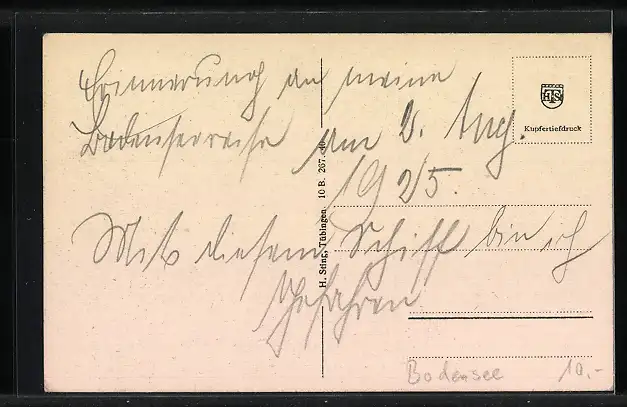 Erinnerung an meine
Bodenseereise
Am 2. Aug.
1925.
Mit diesem Schiff bin ich
gefahren
H. Sting, Tübingen 10 B. 267.
HST
Kupfertiefdruck
Bodensee 10.-